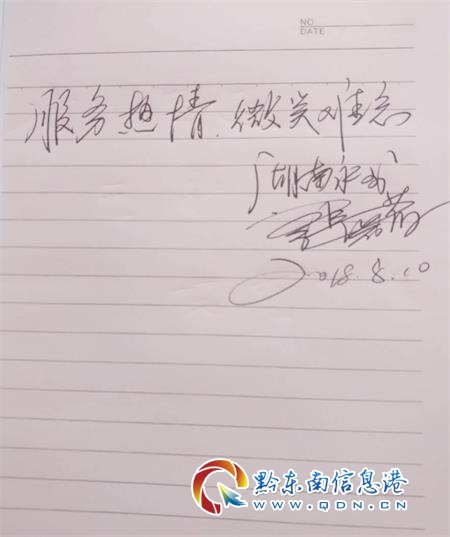 NO
DATE
服务热情.微笑难忘
湖南永州
2018.8.10
黔东南信息港
WWW.QDN.CN